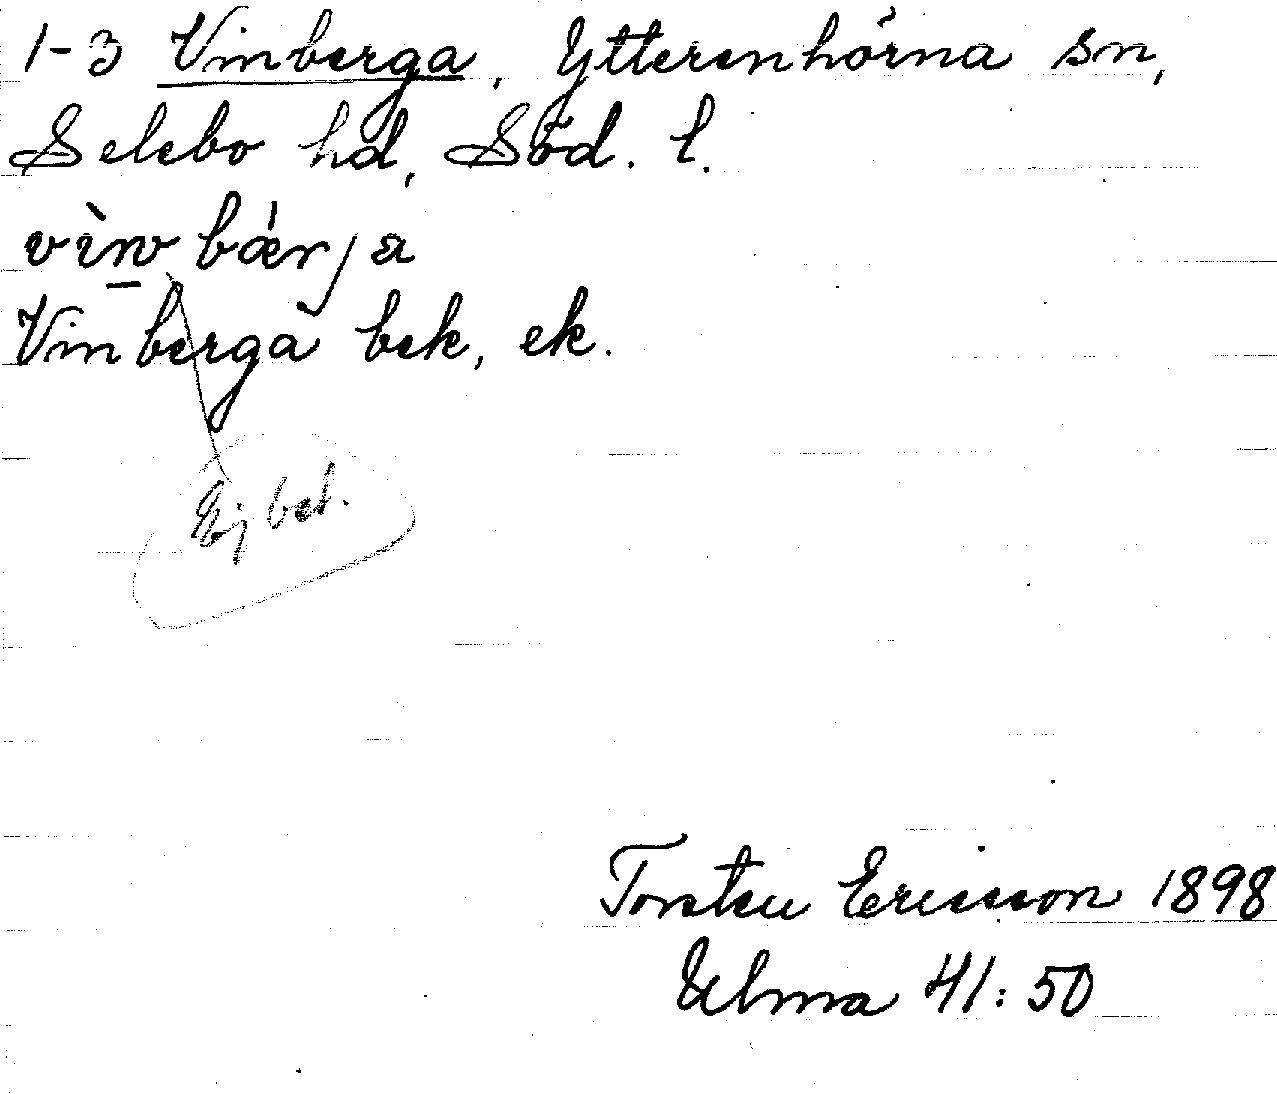 1-3 Vinberga, Ytterenhörna sn,
Selebo hd, Söd. l.
vìn bærja
Vinberga bek, ek.
Ej bet.
Torsten Ericson 1898
Ulma 41:50